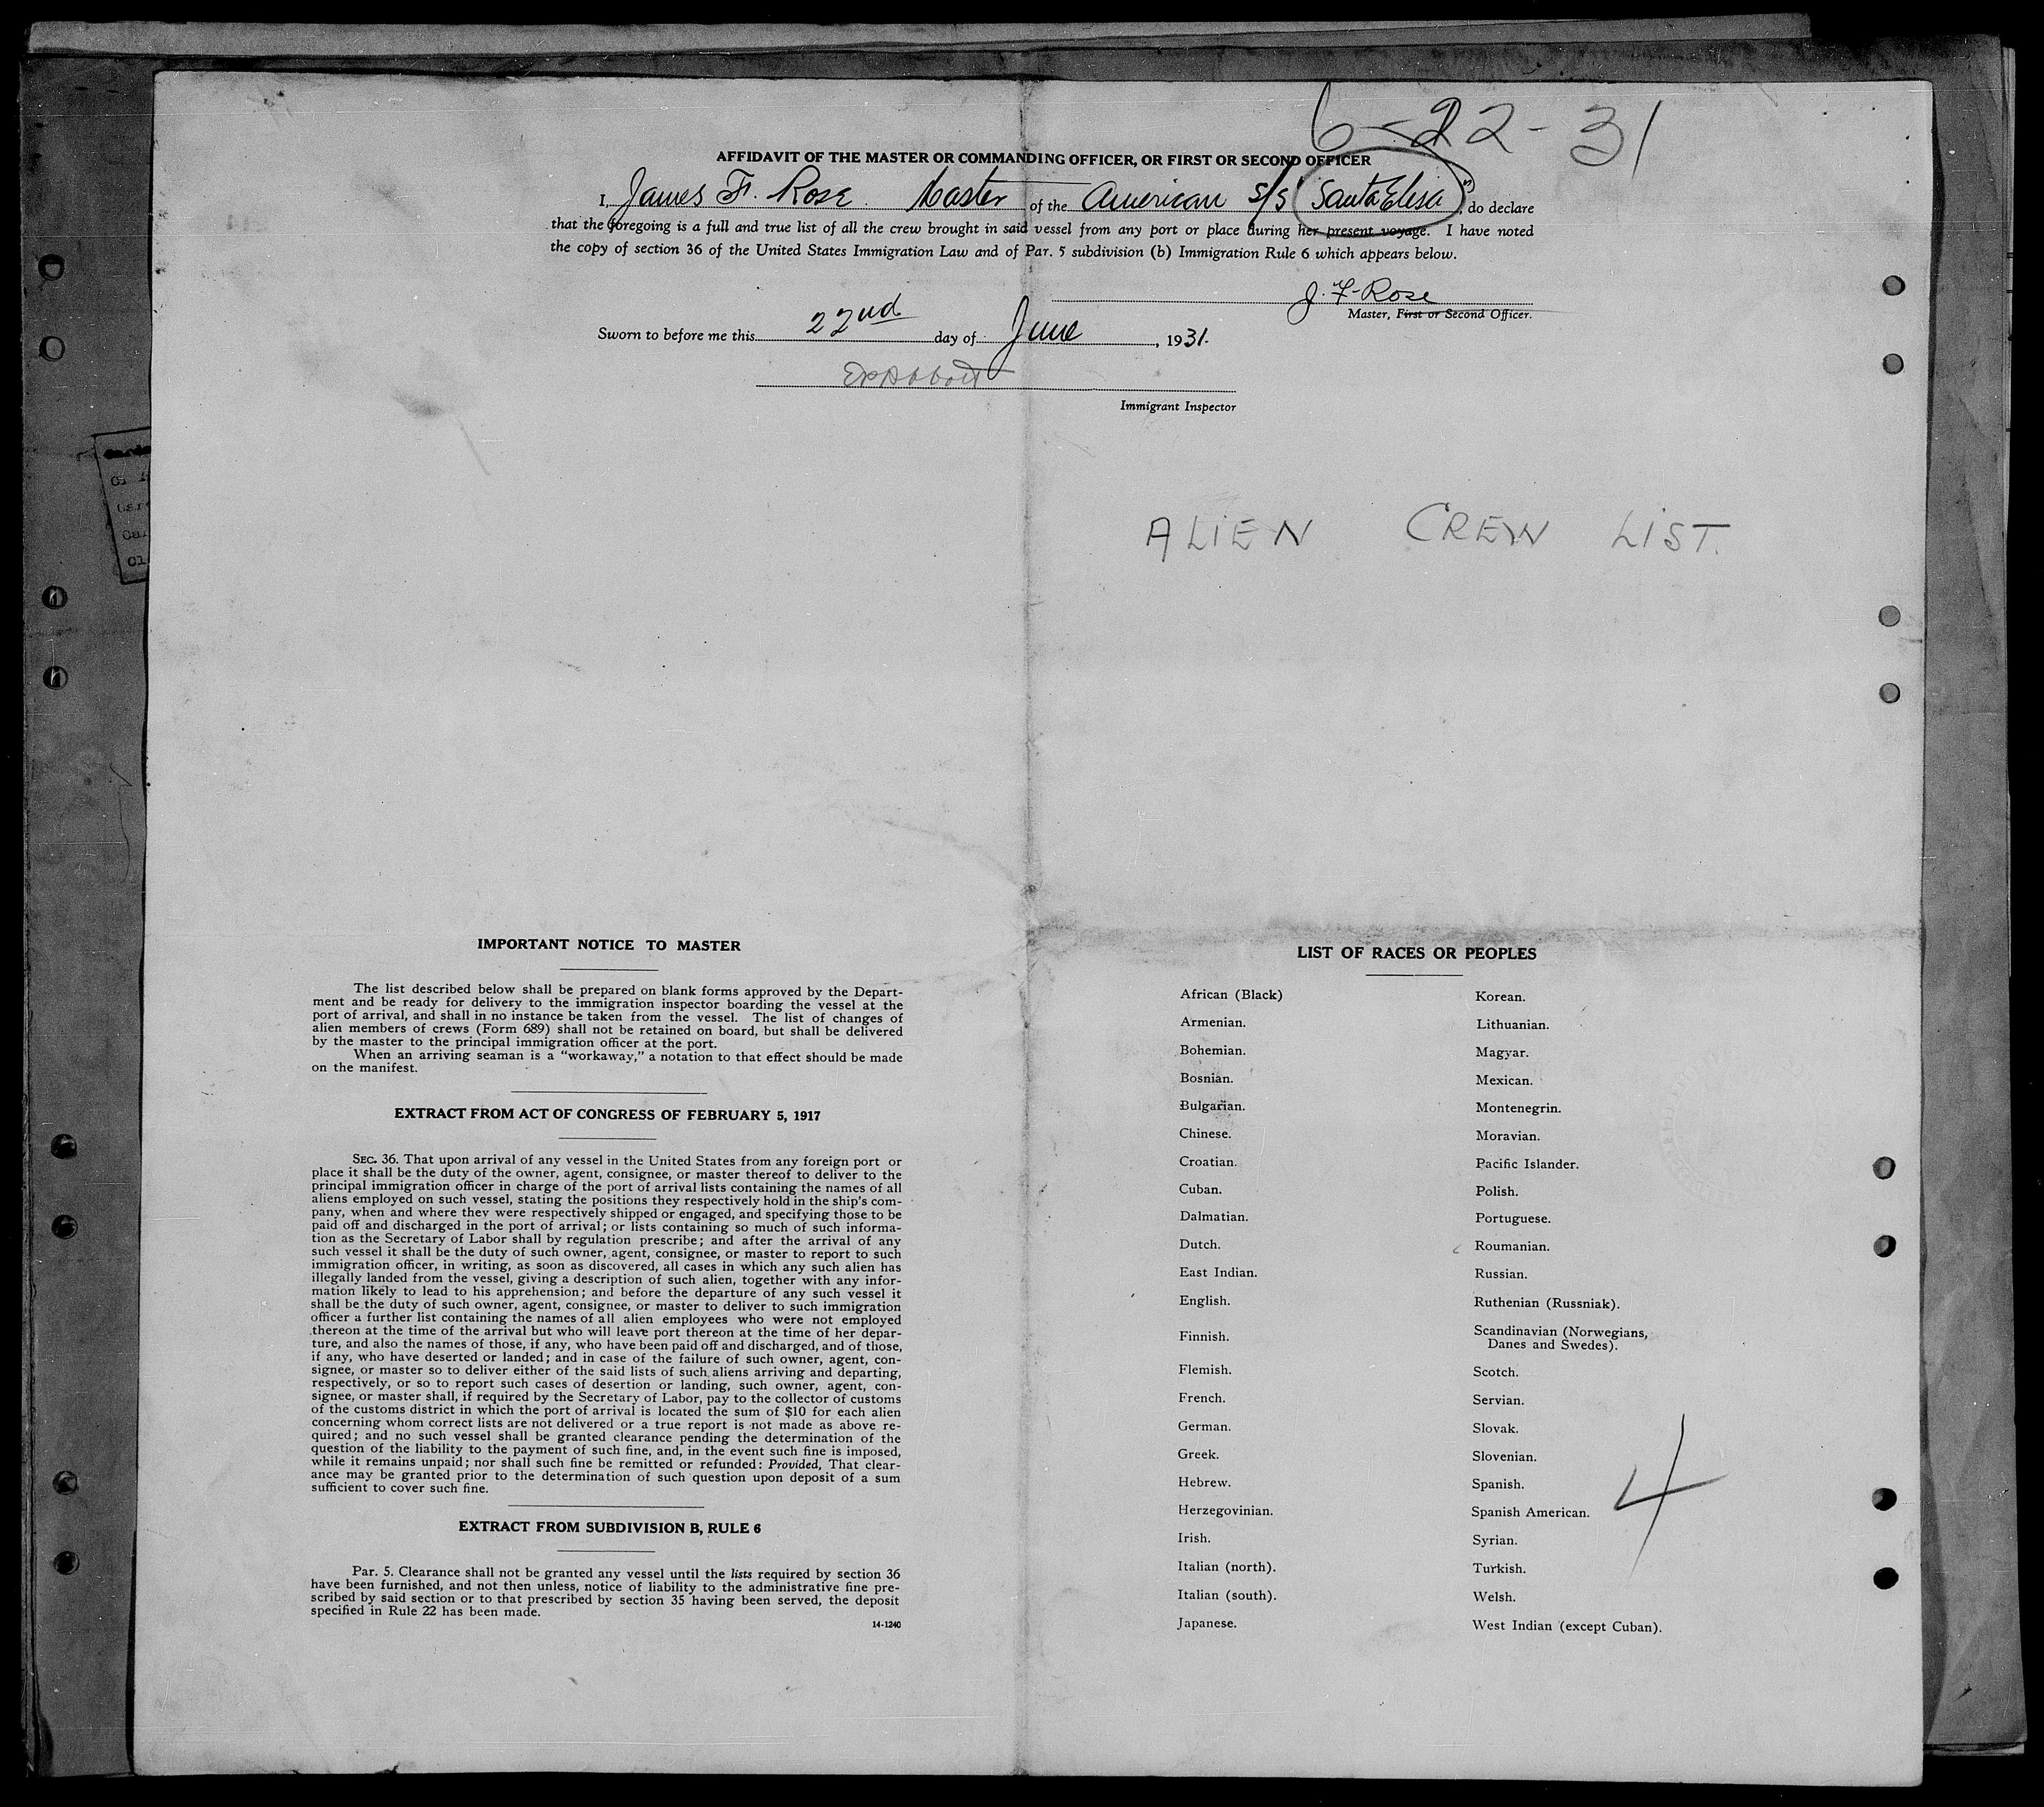 6-22-31
AFFIDAVIT OF THE MASTER OR COMMANDING OFFICER, OR FIRST OR SECOND OFFICER
I, James F. Rose Master of the American S/S "Santa Elisa", do declare
that the foregoing is a full and true list of all the crew brought in said vessel from any port or place during her present voyage. I have noted
the copy of section 36 of the United States Immigration Law and of Par. 5 subdivision (b) Immigration Rule 6 which appears below.
J. F. Rose
Master, First or Second Officer.
Sworn to before me this 22nd day of June, 1931.
Immigrant Inspector
ALIEN CREW LIST.
IMPORTANT NOTICE TO MASTER
The list described below shall be prepared on blank forms approved by the Depart-
ment and be ready for delivery to the immigration inspector boarding the vessel at the
port of arrival, and shall in no instance be taken from the vessel. The list of changes of
alien members of crews (Form 689) shall not be retained on board, but shall be delivered
by the master to the principal immigration officer at the port.
When an arriving seaman is a "workaway," a notation to that effect should be made
on the manifest.
EXTRACT FROM ACT OF CONGRESS OF FEBRUARY 5, 1917
SEC. 36. That upon arrival of any vessel in the United States from any foreign port or
place it shall be the duty of the owner, agent, consignee, or master thereof to deliver to the
principal immigration officer in charge of the port of arrival lists containing the names of all
aliens employed on such vessel, stating the positions they respectively hold in the ship's com-
pany, when and where they were respectively shipped or engaged, and specifying those to be
paid off and discharged in the port of arrival; or lists containing so much of such informa-
tion as the Secretary of Labor shall by regulation prescribe; and after the arrival of any
such vessel it shall be the duty of such owner, agent, consignee, or master to report to such
immigration officer, in writing, as soon as discovered, all cases in which any such alien has
illegally landed from the vessel, giving a description of such alien, together with any infor-
mation likely to lead to his apprehension; and before the departure of any such vessel it
shall be the duty of such owner, agent, consignee, or master to deliver to such immigration
officer a further list containing the names of all alien employees who were not employed
thereon at the time of the arrival but who will leave port thereon at the time of her depar-
ture, and also the names of those, if any, who have been paid off and discharged, and of those,
if any, who have deserted or landed; and in case of the failure of such owner, agent, con-
signee, or master so to deliver either of the said lists of such aliens arriving and departing,
respectively, or so to report such cases of desertion or landing, such owner, agent, con-
signee, or master shall, if required by the Secretary of Labor, pay to the collector of customs
of the customs district in which the port of arrival is located the sum of $10 for each alien
concerning whom correct lists are not delivered or a true report is not made as above re-
quired; and no such vessel shall be granted clearance pending the determination of the
question of the liability to the payment of such fine, and, in the event such fine is imposed,
while it remains unpaid; nor shall such fine be remitted or refunded: Provided, That clear-
ance may be granted prior to the determination of such question upon deposit of a sum
sufficient to cover such fine.
EXTRACT FROM SUBDIVISION B, RULE 6
Par. 5. Clearance shall not be granted any vessel until the lists required by section 36
have been furnished, and not then unless, notice of liability to the administrative fine pre-
scribed by said section or to that prescribed by section 35 having been served, the deposit
specified in Rule 22 has been made.
14-1240
LIST OF RACES OR PEOPLES
African (Black)
Armenian.
Bohemian.
Bosnian.
Bulgarian.
Chinese.
Croatian.
Cuban.
Dalmatian.
Dutch.
East Indian.
English.
Finnish.
Flemish.
French.
German.
Greek.
Hebrew.
Herzegovinian.
Irish.
Italian (north).
Italian (south).
Japanese.
Korean.
Lithuanian.
Magyar.
Mexican.
Montenegrin.
Moravian.
Pacific Islander.
Polish.
Portuguese.
Roumanian.
Russian.
Ruthenian (Russniak).
Scandinavian (Norwegians,
Danes and Swedes).
Scotch.
Servian.
Slovak.
Slovenian.
Spanish.
Spanish American.
Syrian.
Turkish.
Welsh.
West Indian (except Cuban).
4